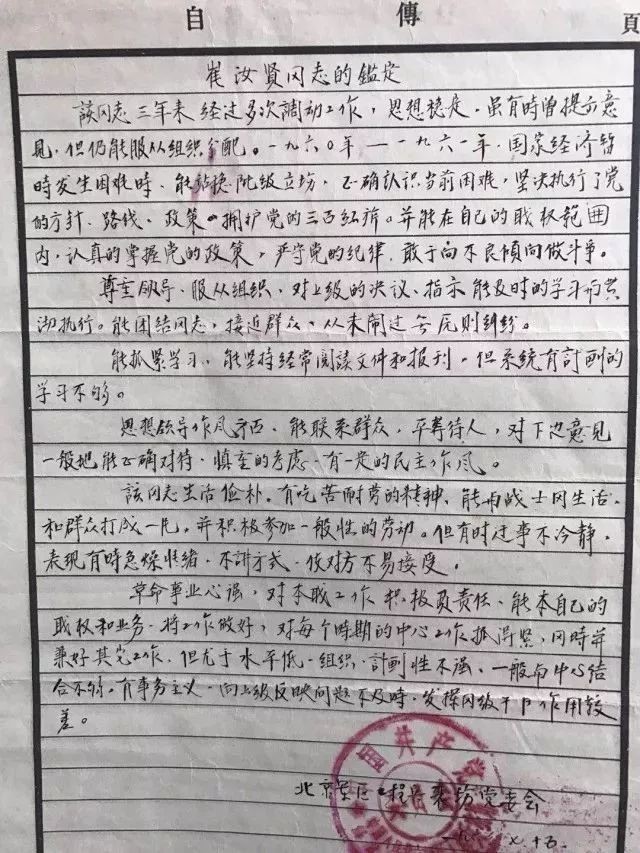 自傳
頁
崔汝贤同志的鑑定
該同志三年来经过多次调动工作，思想稳定。虽有時曾提示意
見，但仍能服从组织分配。一九六〇年—一九六一年，国家经济暂
時发生困难時，能站稳阶级立场，正确认识当前困难，坚决执行了党
的方针、路线、政策。拥护党的三面红旗。并能在自己的职权范囲
内，认真的掌握党的政策，严守党的纪律，敢于向不良傾向做斗争。
尊重领导、服从组织，对上级的决议、指示能及時的学习而贯
彻执行。能团结同志，接近群众，从未闹过无原则纠纷。
能抓紧学习，能坚持经常阅读文件和报刊，但系统有計画的
学习不够。
思想领导作风，能联系群众，平等待人，对下边意見
一般地能正确对待，慎重的考虑，有一定的民主作风。
該同志生活俭朴。有吃苦耐劳的精神，能与战士同生活，
和群众打成一片，并积极参加一般性的劳动。但有时过事不冷静，
表现有時急燥情绪，不讲方式，使对方不易接受。
革命事业心强，对本职工作积极負责任、能本自己的
职权和业务，将工作做好，对每个時期的中心工作抓得緊，同時并
兼好其它工作，但尤于水平低，组织、計画性不强，一般与中心结
合不够。有事务主义，向上级反映问题不及時，发揮同级干部作用較
差。
北京军区 党委会